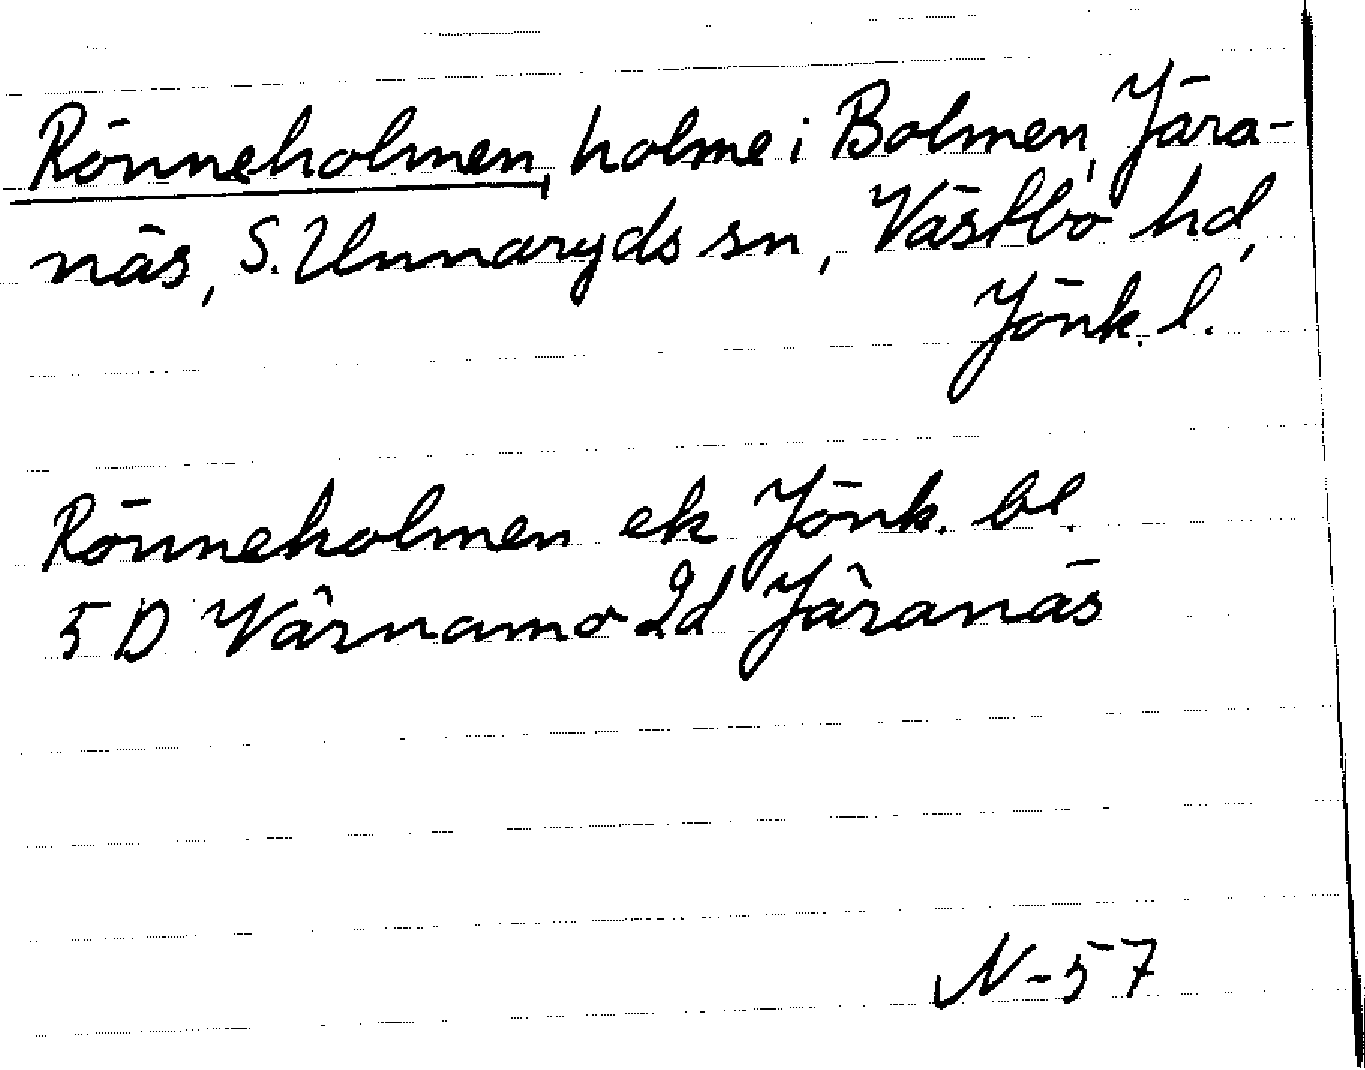 Rönneholmen, holme i Bolmen, Jära-
näs, S. Unnaryds sn, Västbo hd,
Jönk. l.
Rönneholmen ek Jönk. bl.
5 D Värnamo 2d Järanäs
N-57